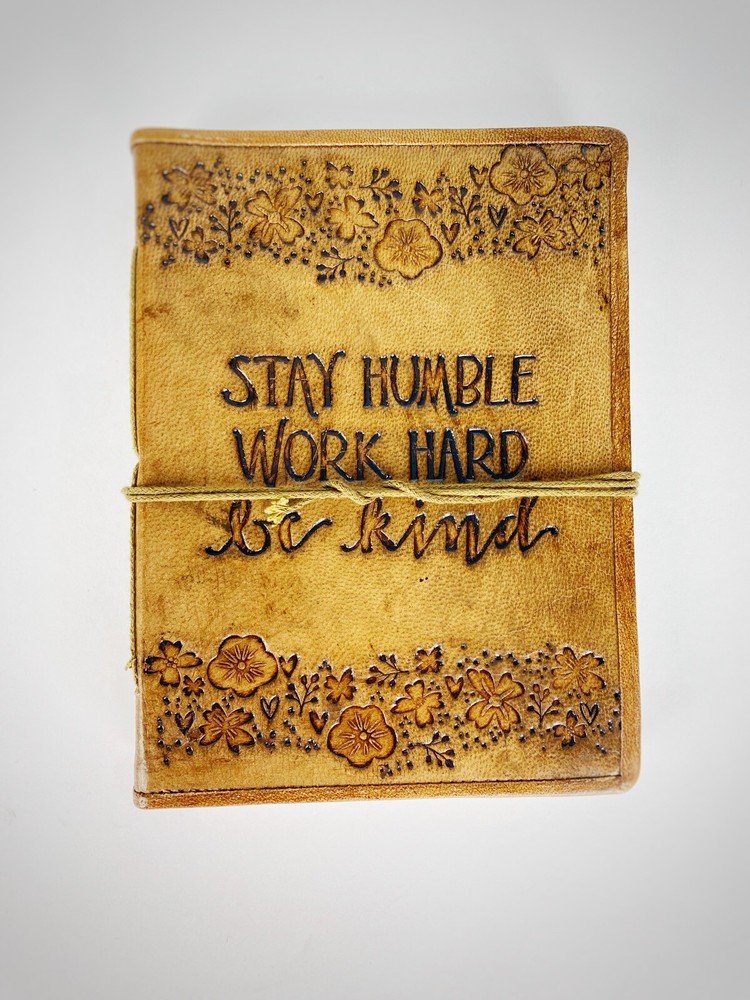 STAY HUMBLE
WORK HARD
be kind